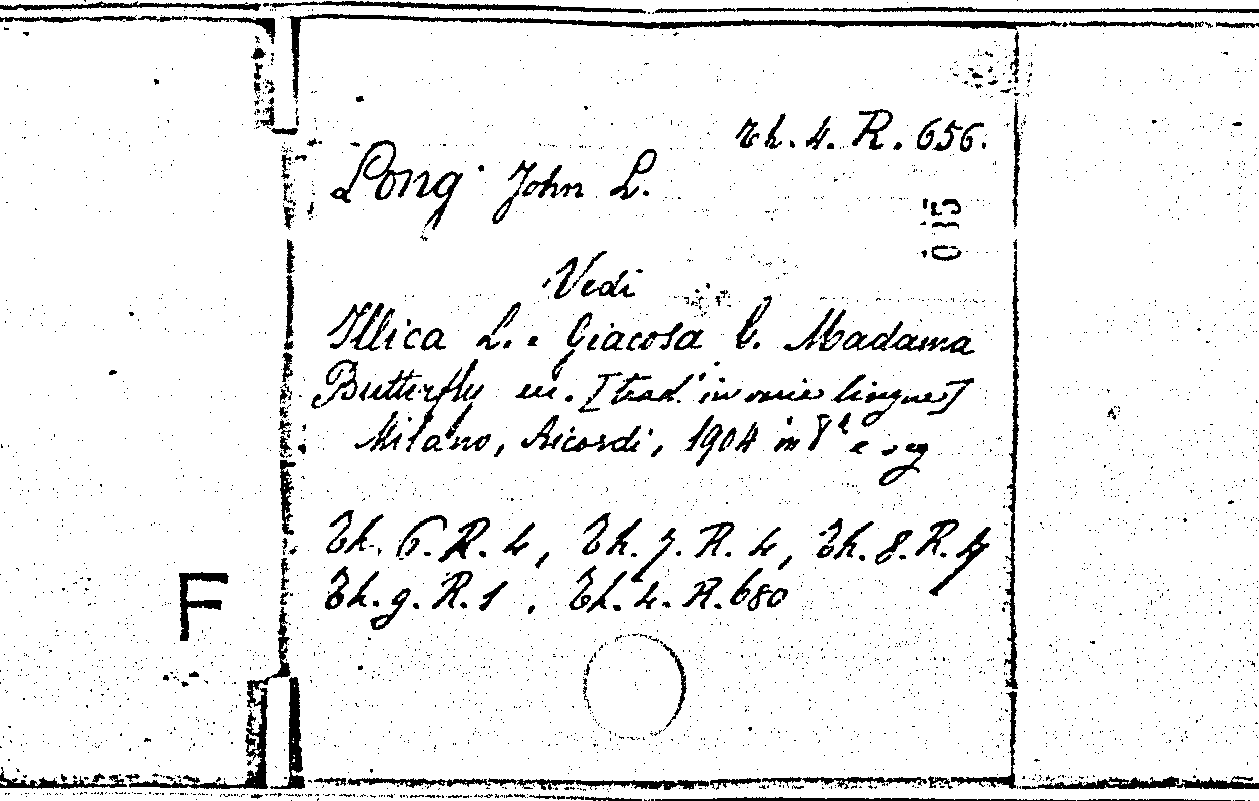 Th. 4. R. 656.
Long John L.
035
Vedi
Illica L. e Giacosa G. Madama
Butterfly ecc. [trad. in varie lingue]
Milano, Ricordi, 1904 in 8° e seg
Th. 6. R. 4, Th. 7. R. 4, Th. 8. R. 4
Th. 9. R. 1 . Th. 4. R. 680
F